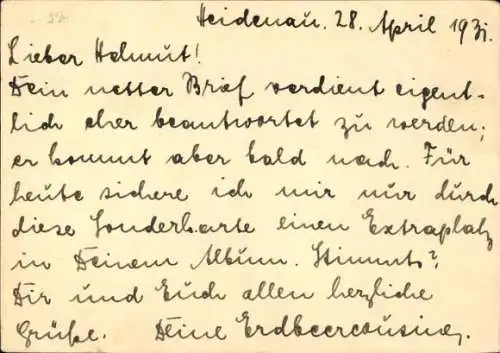 Heidenau. 28. April 193.
Lieber Helmut!
Dein netter Brief verdient eigent-
lich eher beantwortet zu werden;
er kommt aber bald nach. Für
heute sichere ich mir nur durch
diese Sonderkarte einen Extraplatz
in Deinem Album. Stimmts?
Dir und Euch allen herzliche
Grüße. Deine Erdbeercousine.